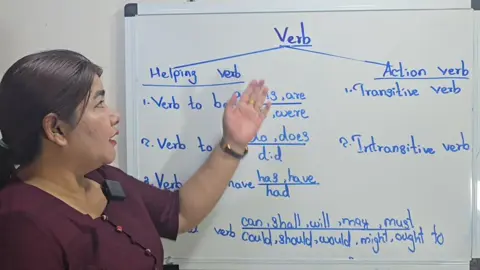 Verb
Helping verb
Action verb
1. Verb to is, are
, were
1. Transitive verb
2. Verb to do, does
did
2. Intransitive verb
Verb have has, have
had
verb can, shall, will, may, must
could, should, would, might, ought to